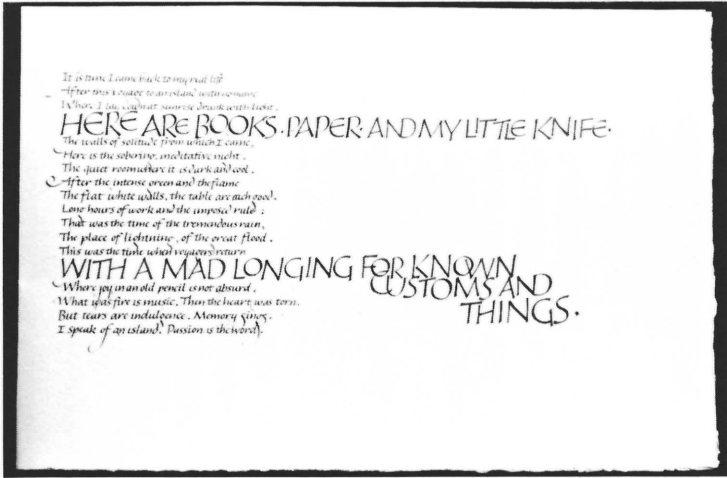 It is time I came back to my real life
After this voyage to an island with no name
Where I lay down at sunrise drunk with light.
HERE ARE BOOKS · PAPER · AND MY LITTLE KNIFE ·
The walls of solitude from which I came,
Here is the sobering, meditative night.
The quiet room where it is dark and cool.
After the intense green and the flame
The flat white walls, the table are each good.
Long hours of work and the imposed rule :
That was the time of the tremendous rain,
The place of lightning, of the great flood.
This was the time when voyagers return
WITH A MAD LONGING FOR KNOWN
CUSTOMS AND
THINGS ·
Where joy in an old pencil is not absurd.
What was fire is music. Then the heart was torn.
But tears are indulgence. Memory sings.
I speak of an island. Passion is the word.